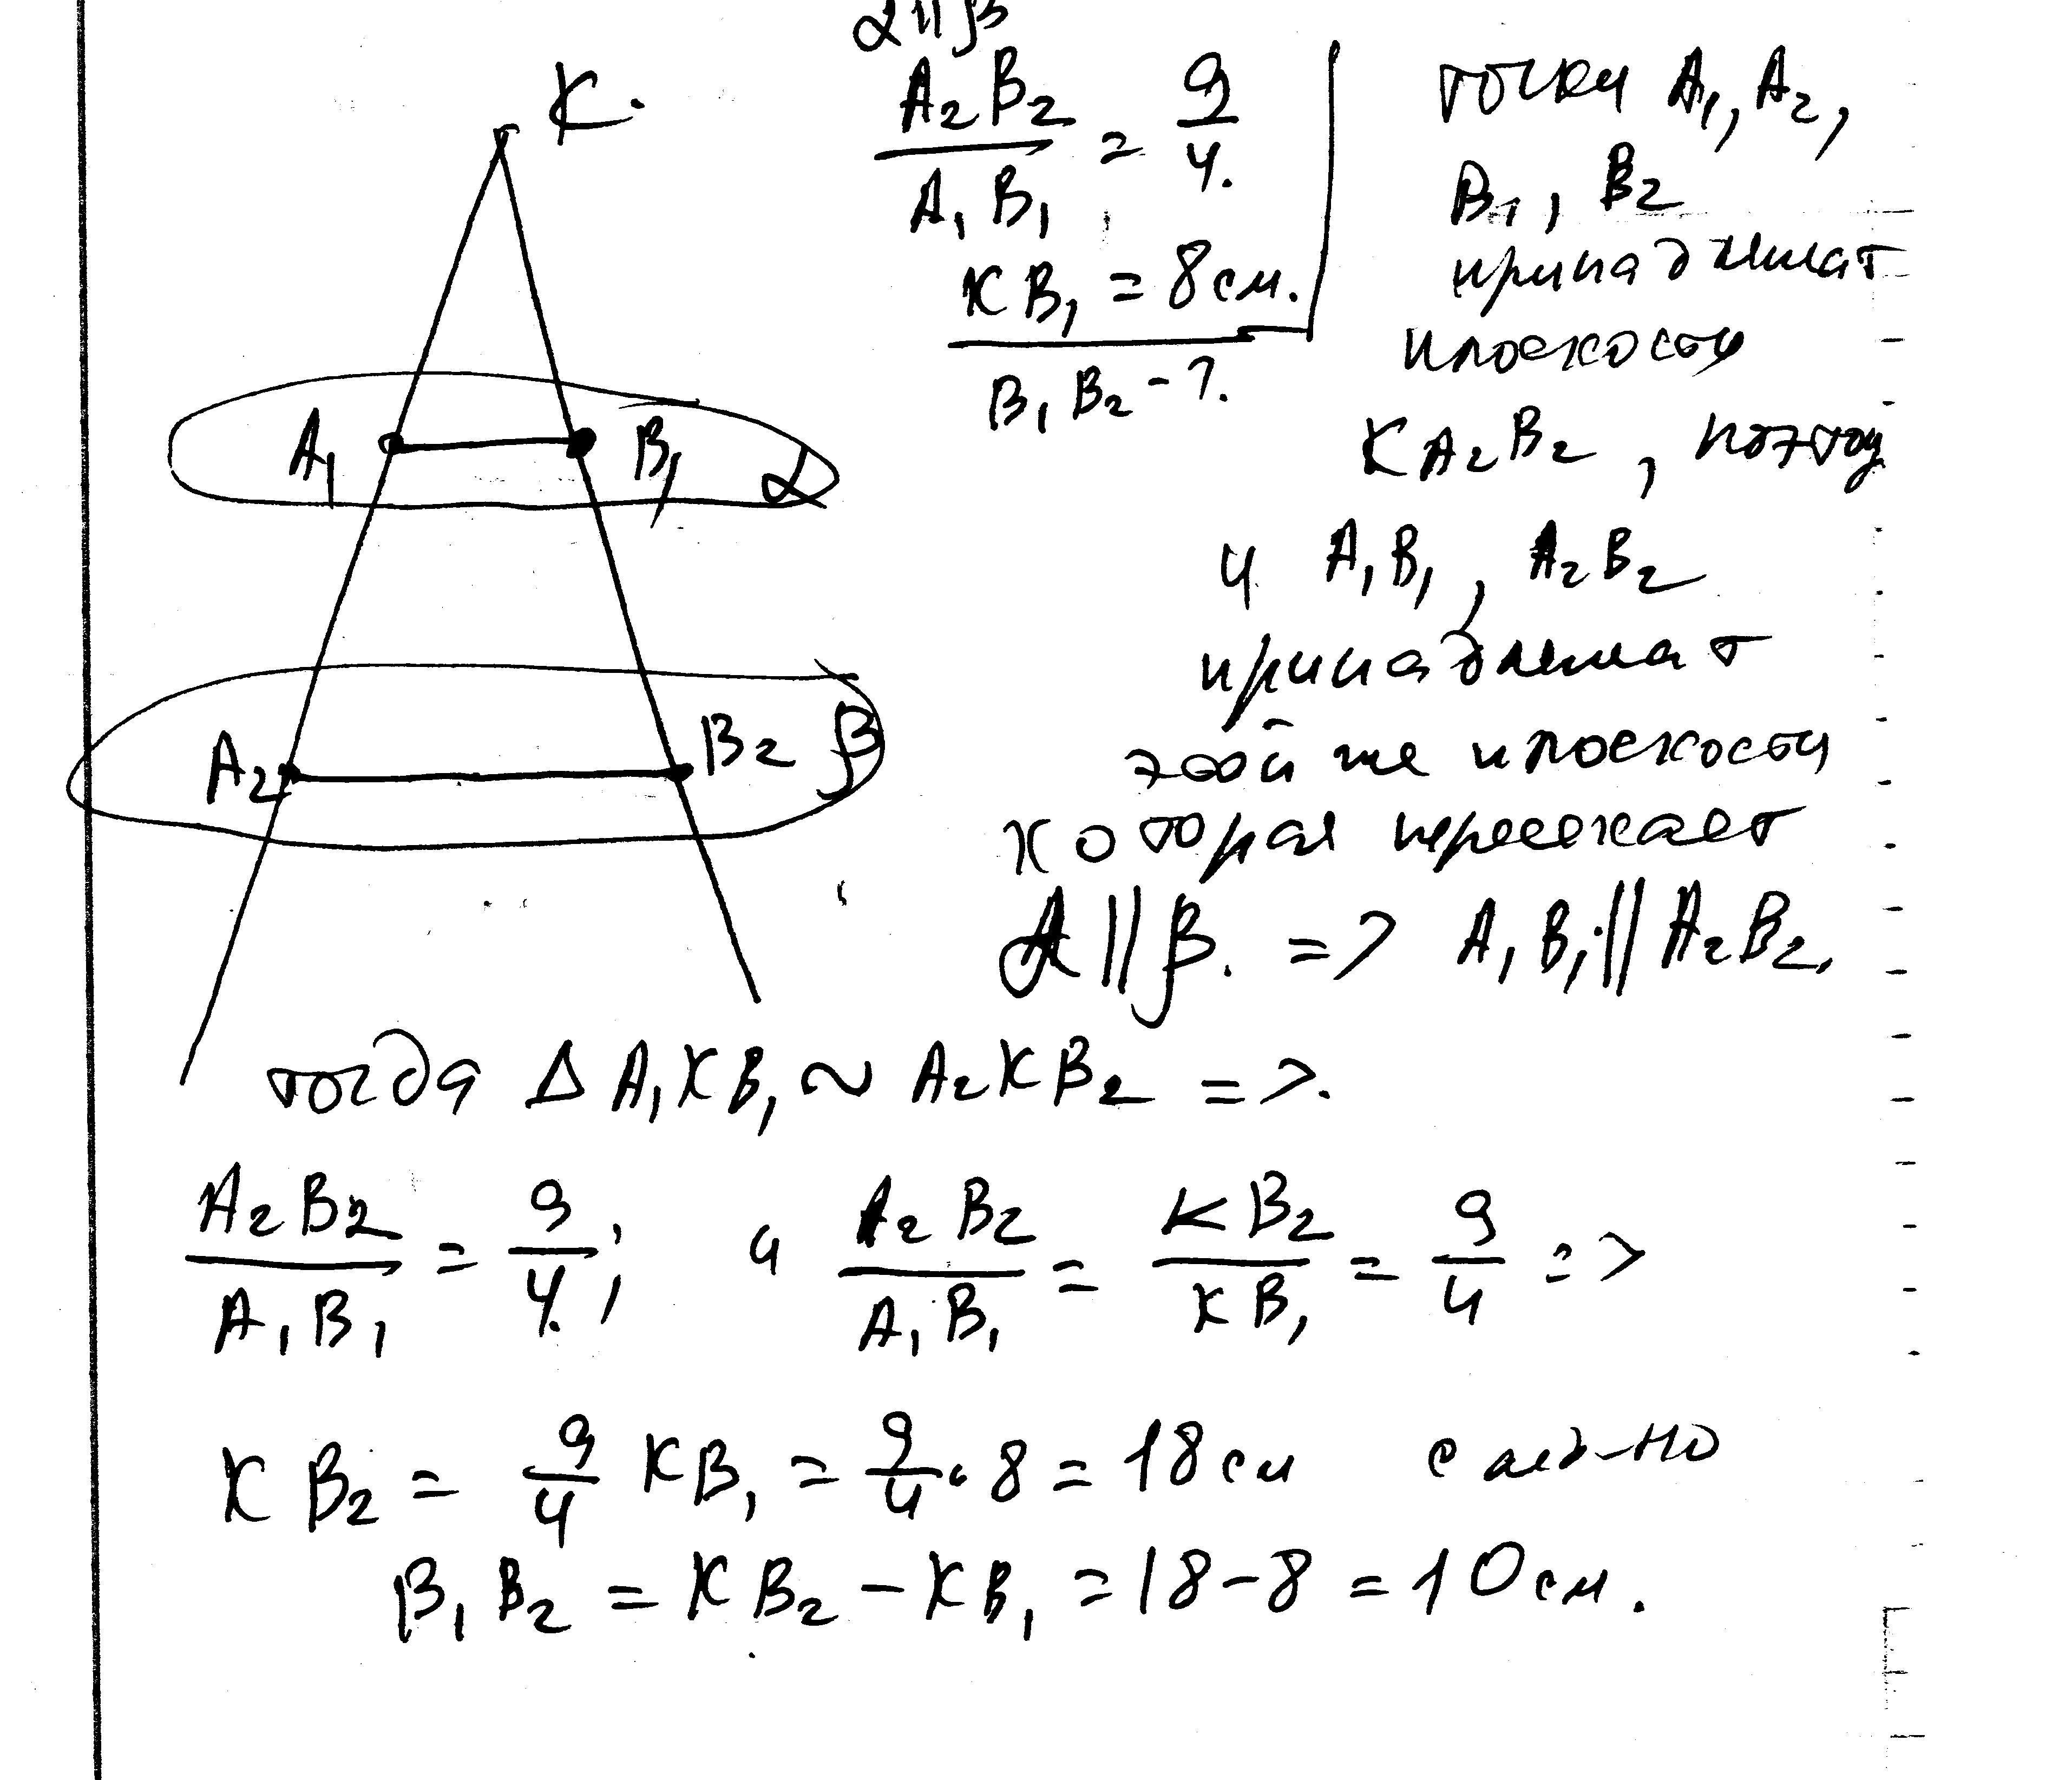 α || β
K.
A₂B₂ / A₁B₁ = 9/4.
KB₁ = 8см.
B₁B₂ - ?.
точки A₁, A₂,
B₁, B₂
принадлежат
плоскости
KA₂B₂, поэтому
и A₁B₁, A₂B₂
принадлежат
этой же плоскости
которая пересекает
α || β. => A₁B₁ || A₂B₂.
A₁ B₁ α
A₂ B₂ β
тогда Δ A₁KB₁ ~ A₂KB₂ =>.
A₂B₂ / A₁B₁ = 9/4; а A₂B₂ / A₁B₁ = KB₂ / KB₁ = 9/4 =>
KB₂ = 9/4 KB₁ = 9/4 · 8 = 18см след-но
B₁B₂ = KB₂ - KB₁ = 18 - 8 = 10см.